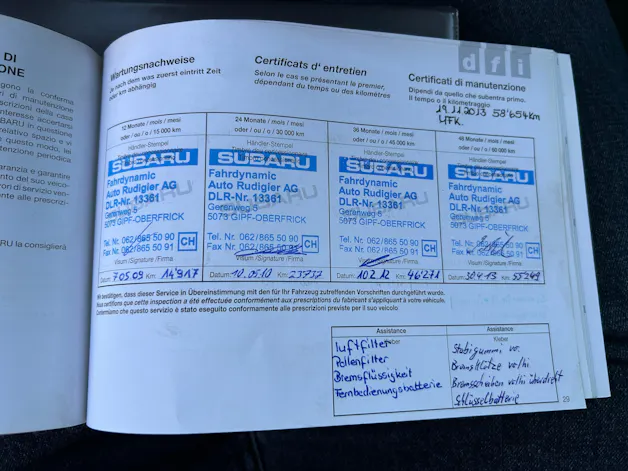 DI
ONE
gono la conferma
di manutenzione
scrizioni della casa
teresse accertarsi
BARU in questione
relativo spazio e vi
questo modo, vi
tenzione periodica
aranzia e garantire
nto del suo veico-
ori di servizio ven-
te alle prescrizi-
RU la consiglierà
Wartungsnachweise
Je nach dem was zuerst eintritt Zeit
oder km abhängig
Certificats d' entretien
Selon le cas se présentant le premier,
dépendant du temps ou des kilomètres
dfi
Certificati di manutenzione
Dipendi da quello che subentra primo.
Il tempo o il kilometraggio
19.11.2013 58'654km
HFK.
12 Monate / mois / mesi
oder / ou / o / 15 000 km
Händler-Stempel
SUBARU
Fahrdynamic
Auto Rudigier AG
DLR-Nr. 13361
Gerenweg 5
5073 GIPF-OBERFRICK
Tel. Nr. 062/865 50 90
Fax Nr. 062/865 50 91
CH
Visum/Signature/Firma
Datum 7.05.09 Km: 14'917
24 Monate / mois / mesi
oder / ou / o / 30 000 km
Händler-Stempel
SUBARU
Fahrdynamic
Auto Rudigier AG
DLR-Nr. 13361
Gerenweg 5
5073 GIPF-OBERFRICK
Tel. Nr. 062/865 50 90
Fax Nr. 062/865 50 91
CH
Visum/Signature/Firma
Datum: 10.05.10 Km: 23'737
36 Monate / mois / mesi
oder / ou / o / 45 000 km
Händler-Stempel
SUBARU
Fahrdynamic
Auto Rudigier AG
DLR-Nr. 13361
Gerenweg 5
5073 GIPF-OBERFRICK
Tel. Nr. 062/865 50 90
Fax Nr. 062/865 50 91
CH
Visum/Signature/Firma
Datum: 10.2.12 Km: 46'271
48 Monate / mois / mesi
oder / ou / o / 60 000 km
Händler-Stempel
SUBARU
Fahrdynamic
Auto Rudigier AG
DLR-Nr. 13361
Gerenweg 5
5073 GIPF-OBERFRICK
Tel. Nr. 062/865 50 90
Fax Nr. 062/865 50 91
CH
Visum/Signature/Firma
Datum: 30.4.13 Km: 55'249
Wir bestätigen, dass dieser Service in Übereinstimmung mit den für Ihr Fahrzeug zutreffenden Vorschriften durchgeführt wurde.
Nous certifions que cette inspection a été effectuée conformément aux prescriptions du fabricant s'appliquant à votre véhicule.
Confermiamo che questo servizio è stato eseguito conformamente alle prescrizioni previste per il suo veicolo
Assistance
Kleber
luftfilter
Pollenfilter
Bremsflüssigkeit
Fernbedienungsbatterie
Assistance
Kleber
Stabigummi vo.
Bremsklötze vo/hi
Bremsscheiben vo/hi überdreht
Schlüsselbatterie
29